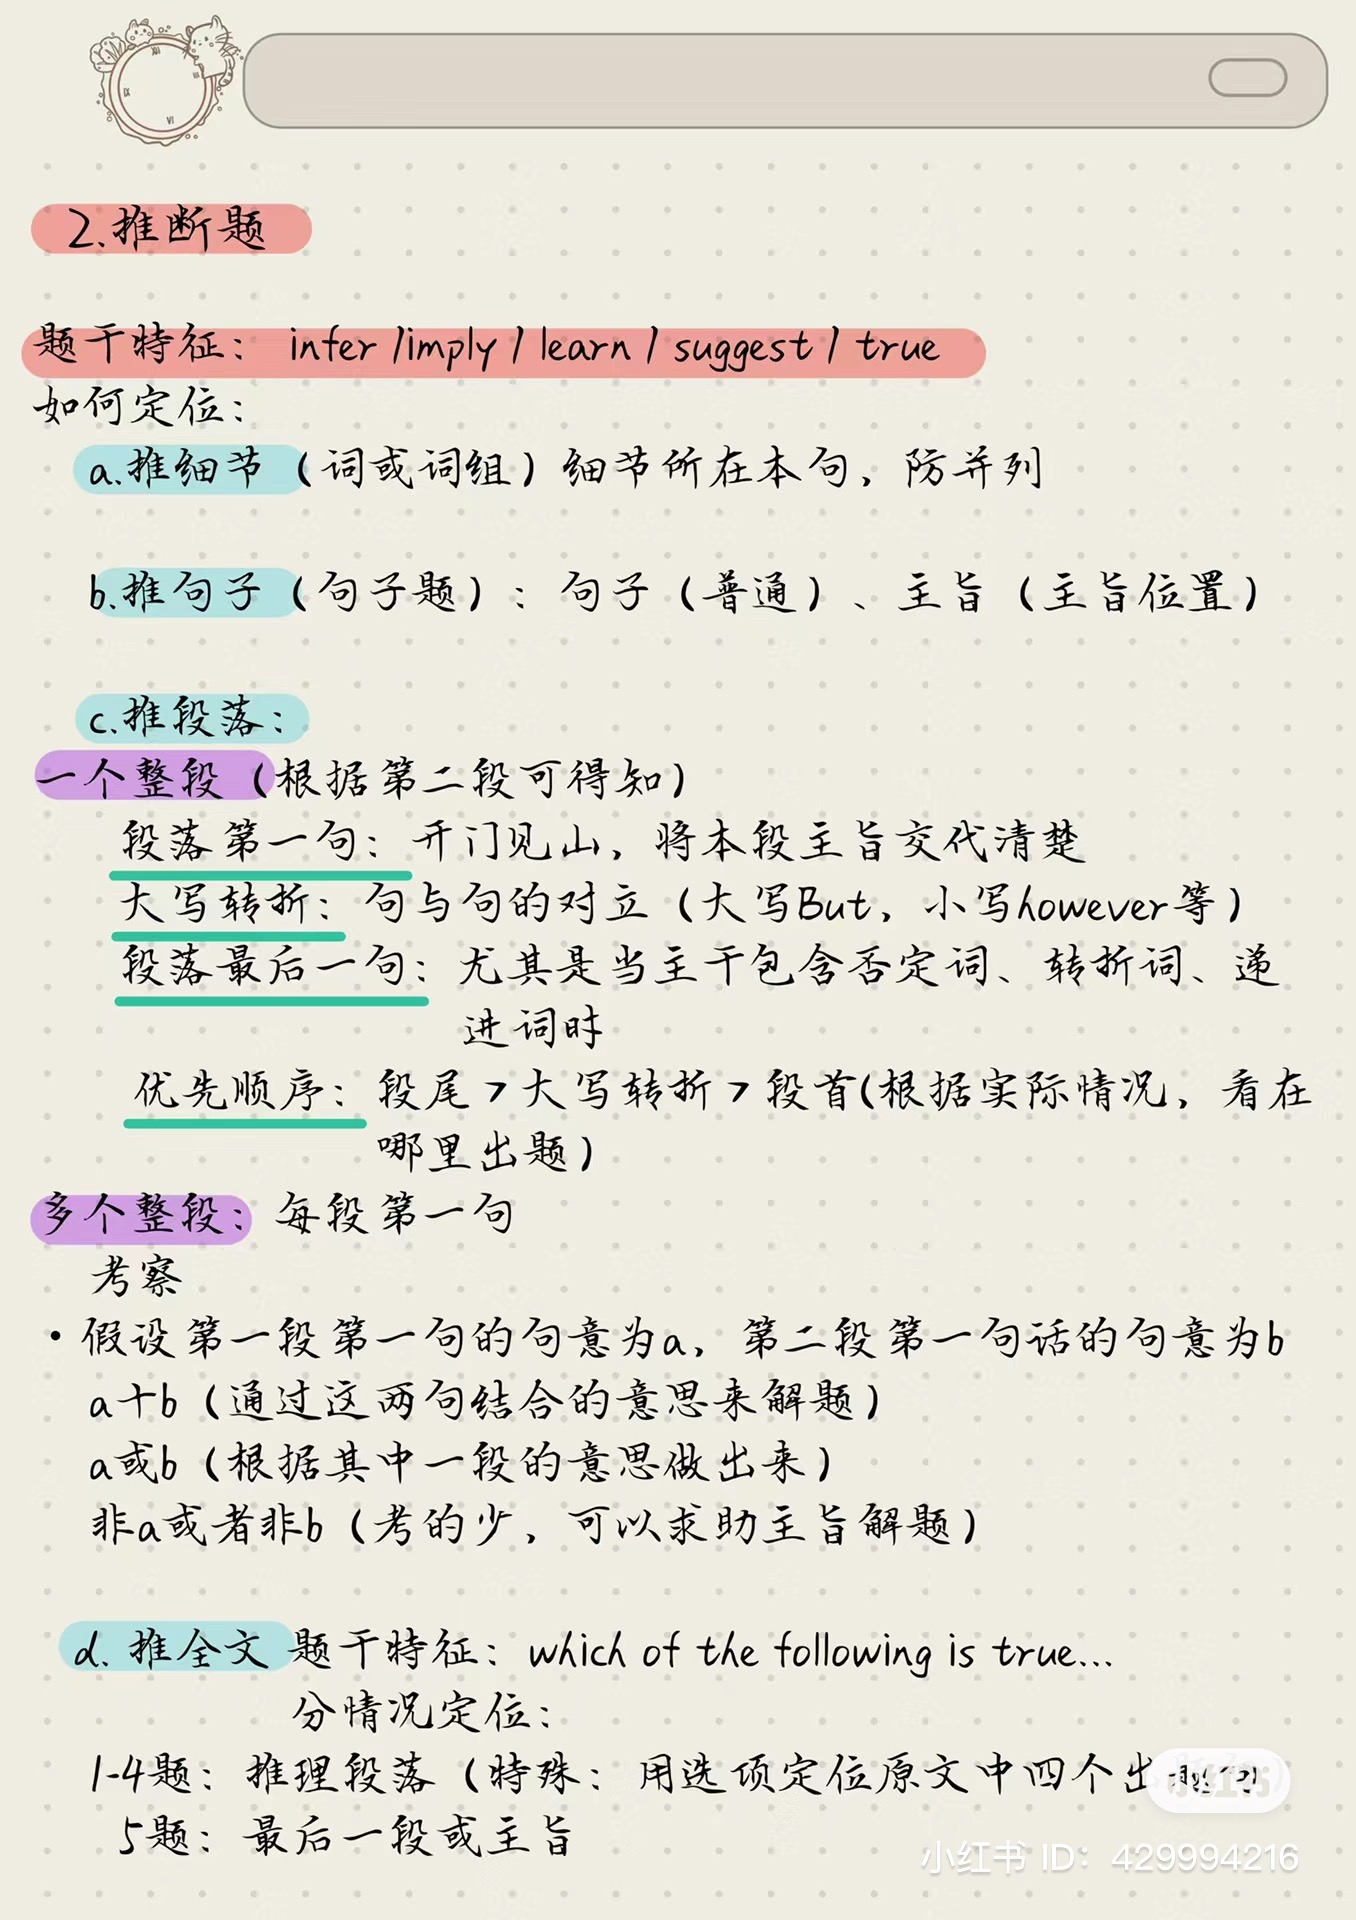 2.推断题
题干特征： infer /imply / learn / suggest / true
如何定位：
a.推细节（词或词组）细节所在本句，防并列
b.推句子（句子题）：句子（普通）、主旨（主旨位置）
c.推段落：
一个整段（根据第二段可得知）
段落第一句：开门见山，将本段主旨交代清楚
大写转折：句与句的对立（大写But，小写however等）
段落最后一句：尤其是当主干包含否定词、转折词、递
进词时
优先顺序：段尾>大写转折>段首(根据实际情况，看在
哪里出题）
多个整段：每段第一句
考察
•假设第一段第一句的句意为a，第二段第一句话的句意为b
a十b（通过这两句结合的意思来解题）
a或b（根据其中一段的意思做出来）
非a或者非b（考的少，可以求助主旨解题）
d. 推全文 题干特征：which of the following is true...
分情况定位：
1-4题：推理段落（特殊：用选项定位原文中四个出题句）
5题：最后一段或主旨
小红书
小红书 ID：429994216